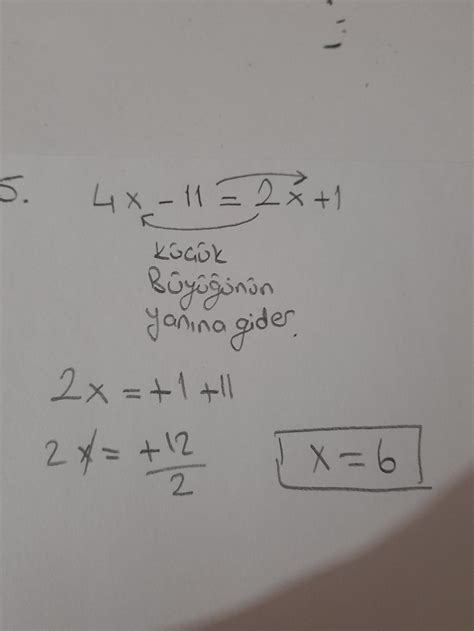 5. 4x - 11 = 2x + 1
küçük
Büyüğünün
yanına gider.
2x = +1 +11
2x = +12/2
x = 6